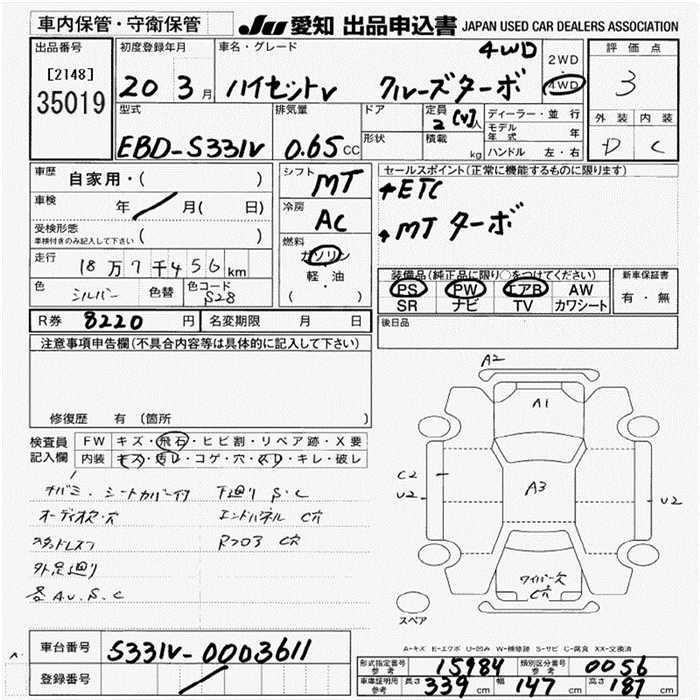 車内保管・守衛保管
JU 愛知 出品申込書 JAPAN USED CAR DEALERS ASSOCIATION
出品番号
[2148]
35019
初度登録年月
20 3月
車名・グレード
4WD
ハイゼットV クルーズターボ
2WD
・
4WD
評価点
3
外装 内装
D C
型式
EBD-S331V
排気量
0.65 CC
ドア
形状
定員
2 [4]人
積載
kg
ディーラー・並行
モデル年式 年
ハンドル 左・右
車歴
自家用・( )
車検
年 ／ 月( 日)
受検形態
車検付きのみ記入して下さい
( )
走行
18万7千456km
色
シルバー
色替
色コード
S28
シフト
MT
冷房
AC
燃料
ガソリン
軽・油
( )
セールスポイント(正常に機能するものに限ります)
↑ETC
↑MT ターボ
装備品(純正品に限り○をつけてください)
PS PW エアB AW
SR ナビ TV カワシート
新車保証書
有・無
R券 8220円
名変期限 月 日
後日品
注意事項申告欄(不具合内容等は具体的に記入して下さい)
修復歴 有 (箇所 )
検査員
記入欄
FW キズ・飛石・ヒビ割・リペア跡・X要
内装 キズ・汚レ・コゲ・穴・スレ・キレ・破レ
シートカバー付 下廻り S.C
オーディオス・穴 エンドパネル C穴
スタッドレス Rフロア C穴
外足廻り
各AU.S.C
A2
A1
A3
C2
U2
U2
ワイパー欠
C穴
スペア
A-キズ E-エクボ U-凹み W-補修跡 S-サビ C-腐食 XX-交換済
車台番号 S331V-0003611
登録番号 ／
形式指定番号 参考 15984 類別区分番号 参考 0056
車庫証明用 参考 長さ 339 cm 幅 147 cm 高さ 187 cm